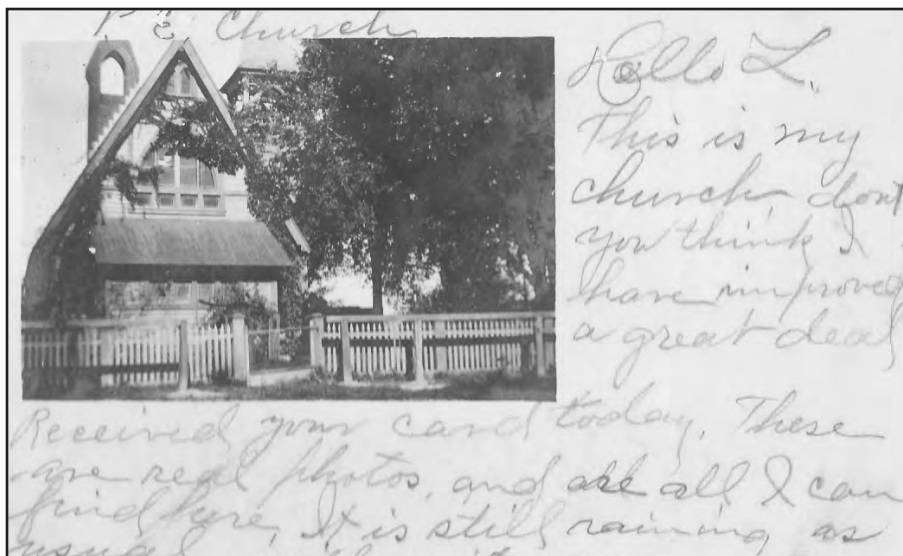 P. E. Church
Hello L.
This is my
church, dont
you think I
have improved
a great deal
Received your card today. These
are real photos, and are all I can
find here, It is still raining as
usual